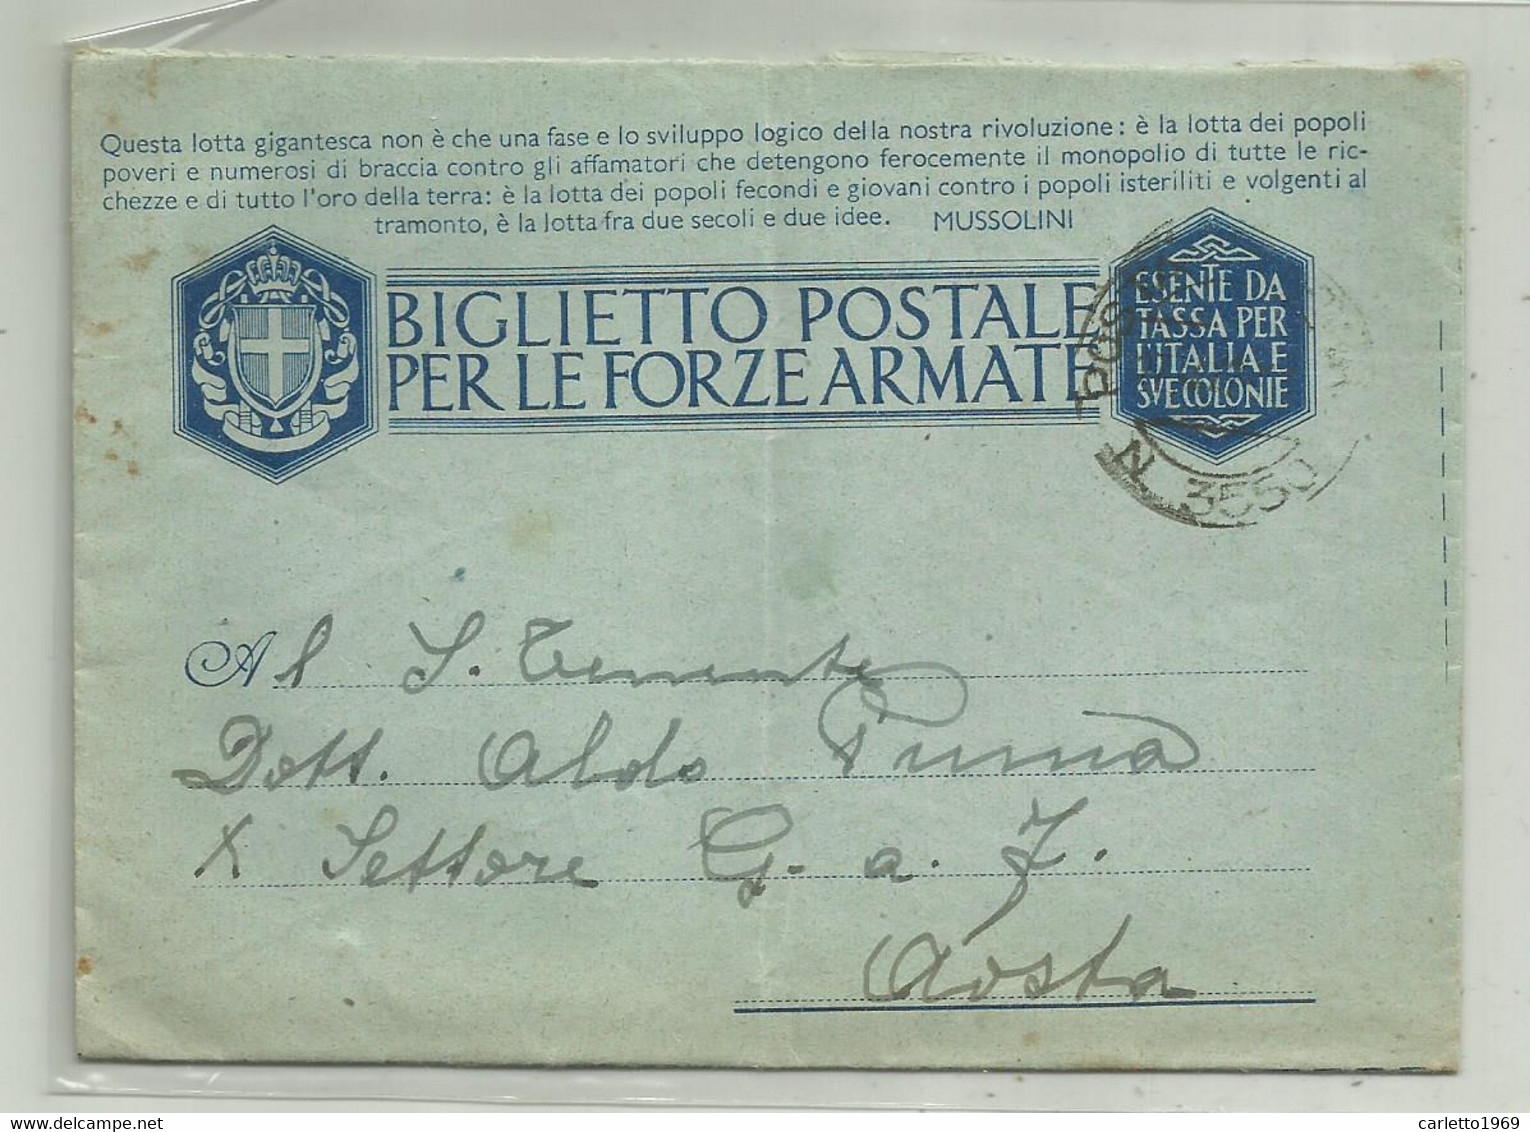 Questa lotta gigantesca non è che una fase e lo sviluppo logico della nostra rivoluzione: è la lotta dei popoli
poveri e numerosi di braccia contro gli affamatori che detengono ferocemente il monopolio di tutte le ric-
chezze e di tutto l'oro della terra: è la lotta dei popoli fecondi e giovani contro i popoli isteriliti e volgenti al
tramonto, è la lotta fra due secoli e due idee. MUSSOLINI
BIGLIETTO POSTALE
PER LE FORZE ARMATE
ESENTE DA
TASSA PER
L'ITALIA E
SVE COLONIE
POSTA
N. 3550
Al S. Tenente
Dott. Aldo Pumà
X Settore G. a. F.
Aosta
carletto1969